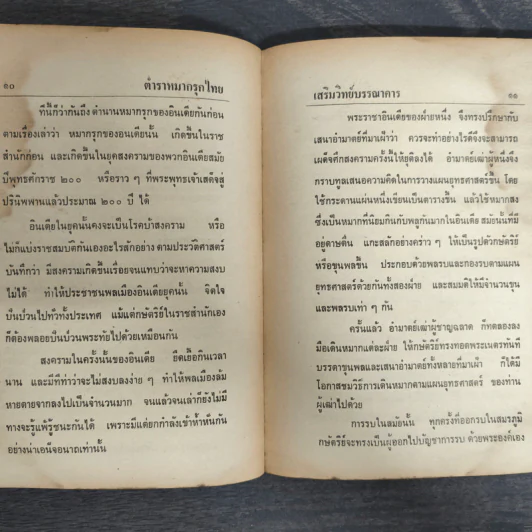 ๑๐ ตำราหมากรุกไทย
ทีนี้ก็ว่ากันถึงตำนานหมากรุกของอินเดียกันก่อน
ตามเรื่องเล่าว่า หมากรุกของอินเดียนั้น เกิดขึ้นในราช
สำนักก่อน และเกิดขึ้นในยุคสงครามของพวกอินเดียสมัย
ปีพุทธศักราช ๒๐๐ หรือราว ๆ ที่พระพุทธเจ้าเสด็จสู่
ปรินิพพานแล้วประมาณ ๒๐๐ ปี ได้
อินเดียในยุคนั้นคงจะเป็นโรคบ้าสงคราม หรือ
ไม่ก็แบ่งราชสมบัติกันเองอะไรสักอย่าง ตามประวัติศาสตร์
บันทึกว่า มีสงครามเกิดขึ้นเรื่อยจนแทบว่าจะหาความสงบ
ไม่ได้ ทำให้ประชาชนพลเมืองอินเดียยุคนั้น จิตใจ
ปั่นป่วนไปทั่วทั้งประเทศ แม้แต่กษัตริย์ในราชสำนักเอง
ก็ต้องพลอยปั่นป่วนพระทัยไปด้วยเหมือนกัน
สงครามในครั้งนั้นของอินเดีย ยืดเยื้อกินเวลา
นาน และมีทีท่าว่าจะไม่สงบลงง่าย ๆ ทำให้พลเมืองล้ม
หายตายจากลงไปเป็นจำนวนมาก จนแล้วจนเล่าก็ยังไม่มี
ทางจะรู้แพ้รู้ชนะกันได้ เพราะมีแต่ยกกำลังเข้าห้ำหั่นกัน
อย่างน่าเอน็จอนาถเท่านั้น
เสริมวิทย์บรรณาคาร ๑๑
พระราชาอินเดียของฝ่ายหนึ่ง จึงทรงปรึกษากับ
เสนาอำมาตย์ที่มาเฝ้าว่า ควรจะทำอย่างไรดีจึงจะสามารถ
เผด็จศึกสงครามครั้งนี้ให้ยุติลงได้ อำมาตย์เฒ่าผู้หนึ่งจึง
กราบทูลเสนอความคิดในการวางแผนยุทธศาสตร์ขึ้น โดย
ใช้กระดานแผ่นหนึ่งเขียนเป็นตารางขึ้น แล้วใช้หมากสง
ซึ่งเป็นหมากที่นิยมกันกับพลูกันมากในอินเดีย สมัยนั้นที่มี
อยู่ดาษดื่น แกะสลักอย่างคร่าว ๆ ให้เป็นรูปตัวกษัตริย์
หรือขุนพลขึ้น ประกอบด้วยพลรบและกองรบตามแผน
ยุทธศาสตร์ด้วยกันทั้งสองฝ่าย และสมมติให้มีจำนวนขุน
และพลรบเท่า ๆ กัน
ครั้นแล้ว อำมาตย์เฒ่าผู้ชาญฉลาด ก็ทดลองลง
มือเดินหมากแต่ละฝ่าย ให้กษัตริย์ทรงทอดพระเนตรทันที
บรรดาขุนพลและเสนาอำมาตย์ทั้งหลายที่มาเฝ้า ก็ได้มี
โอกาสชมวิธีการเดินหมากตามแผนยุทธศาสตร์ ของท่าน
ผู้เฒ่าไปด้วย
การรบในสมัยนั้น ทุกครั้งที่ออกรบในสมรภูมิ
กษัตริย์จะทรงเป็นผู้ออกไปบัญชาการรบ ด้วยพระองค์เอง